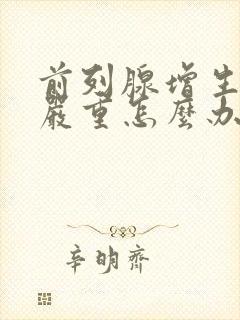 前列腺增生
嚴重怎麼办
辛明齊